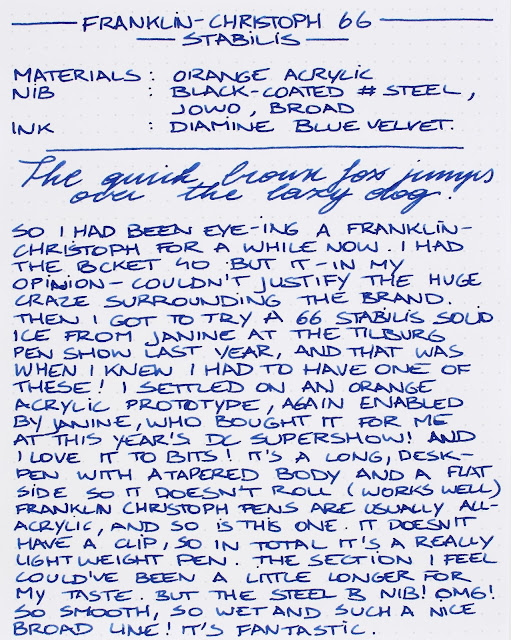 FRANKLIN-CHRISTOPH 66
STABILIS
MATERIALS : ORANGE ACRYLIC
NIB : BLACK-COATED # STEEL,
JOWO, BROAD
INK : DIAMINE BLUE VELVET.
The quick brown fox jumps
over the lazy dog.
SO I HAD BEEN EYE-ING A FRANKLIN-
CHRISTOPH FOR A WHILE NOW. I HAD
THE POCKET 40 BUT IT - IN MY
OPINION - COULDN'T JUSTIFY THE HUGE
CRAZE SURROUNDING THE BRAND.
THEN I GOT TO TRY A 66 STABILIS SOLID
ICE FROM JANINE AT THE TILBURG
PEN SHOW LAST YEAR, AND THAT WAS
WHEN I KNEW I HAD TO HAVE ONE OF
THESE! I SETTLED ON AN ORANGE
ACRYLIC PROTOTYPE, AGAIN ENABLED
BY JANINE, WHO BOUGHT IT FOR ME
AT THIS YEAR'S DC SUPERSHOW! AND
I LOVE IT TO BITS! IT'S A LONG, DESK-
PEN WITH A TAPERED BODY AND A FLAT
SIDE SO IT DOESN'T ROLL (WORKS WELL)
FRANKLIN CHRISTOPH PENS ARE USUALLY ALL-
ACRYLIC, AND SO IS THIS ONE. IT DOESN'T
HAVE A CLIP, SO IN TOTAL IT'S A REALLY
LIGHTWEIGHT PEN. THE SECTION I FEEL
COULD'VE BEEN A LITTLE LONGER FOR
MY TASTE. BUT THE STEEL B NIB! OMG!
SO SMOOTH, SO WET AND SUCH A NICE
BROAD LINE! IT'S FANTASTIC.